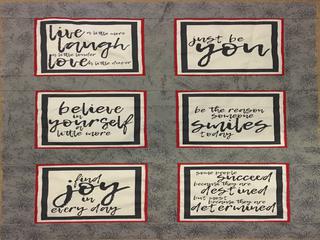 live a little more
laugh
a little louder
love a little deeper
just be
you
believe
in
yourself
a little more
be the reason
someone
smiles
today
find
joy
in
every day
some people
succeed
because they are
destined
but most
because they are
determined